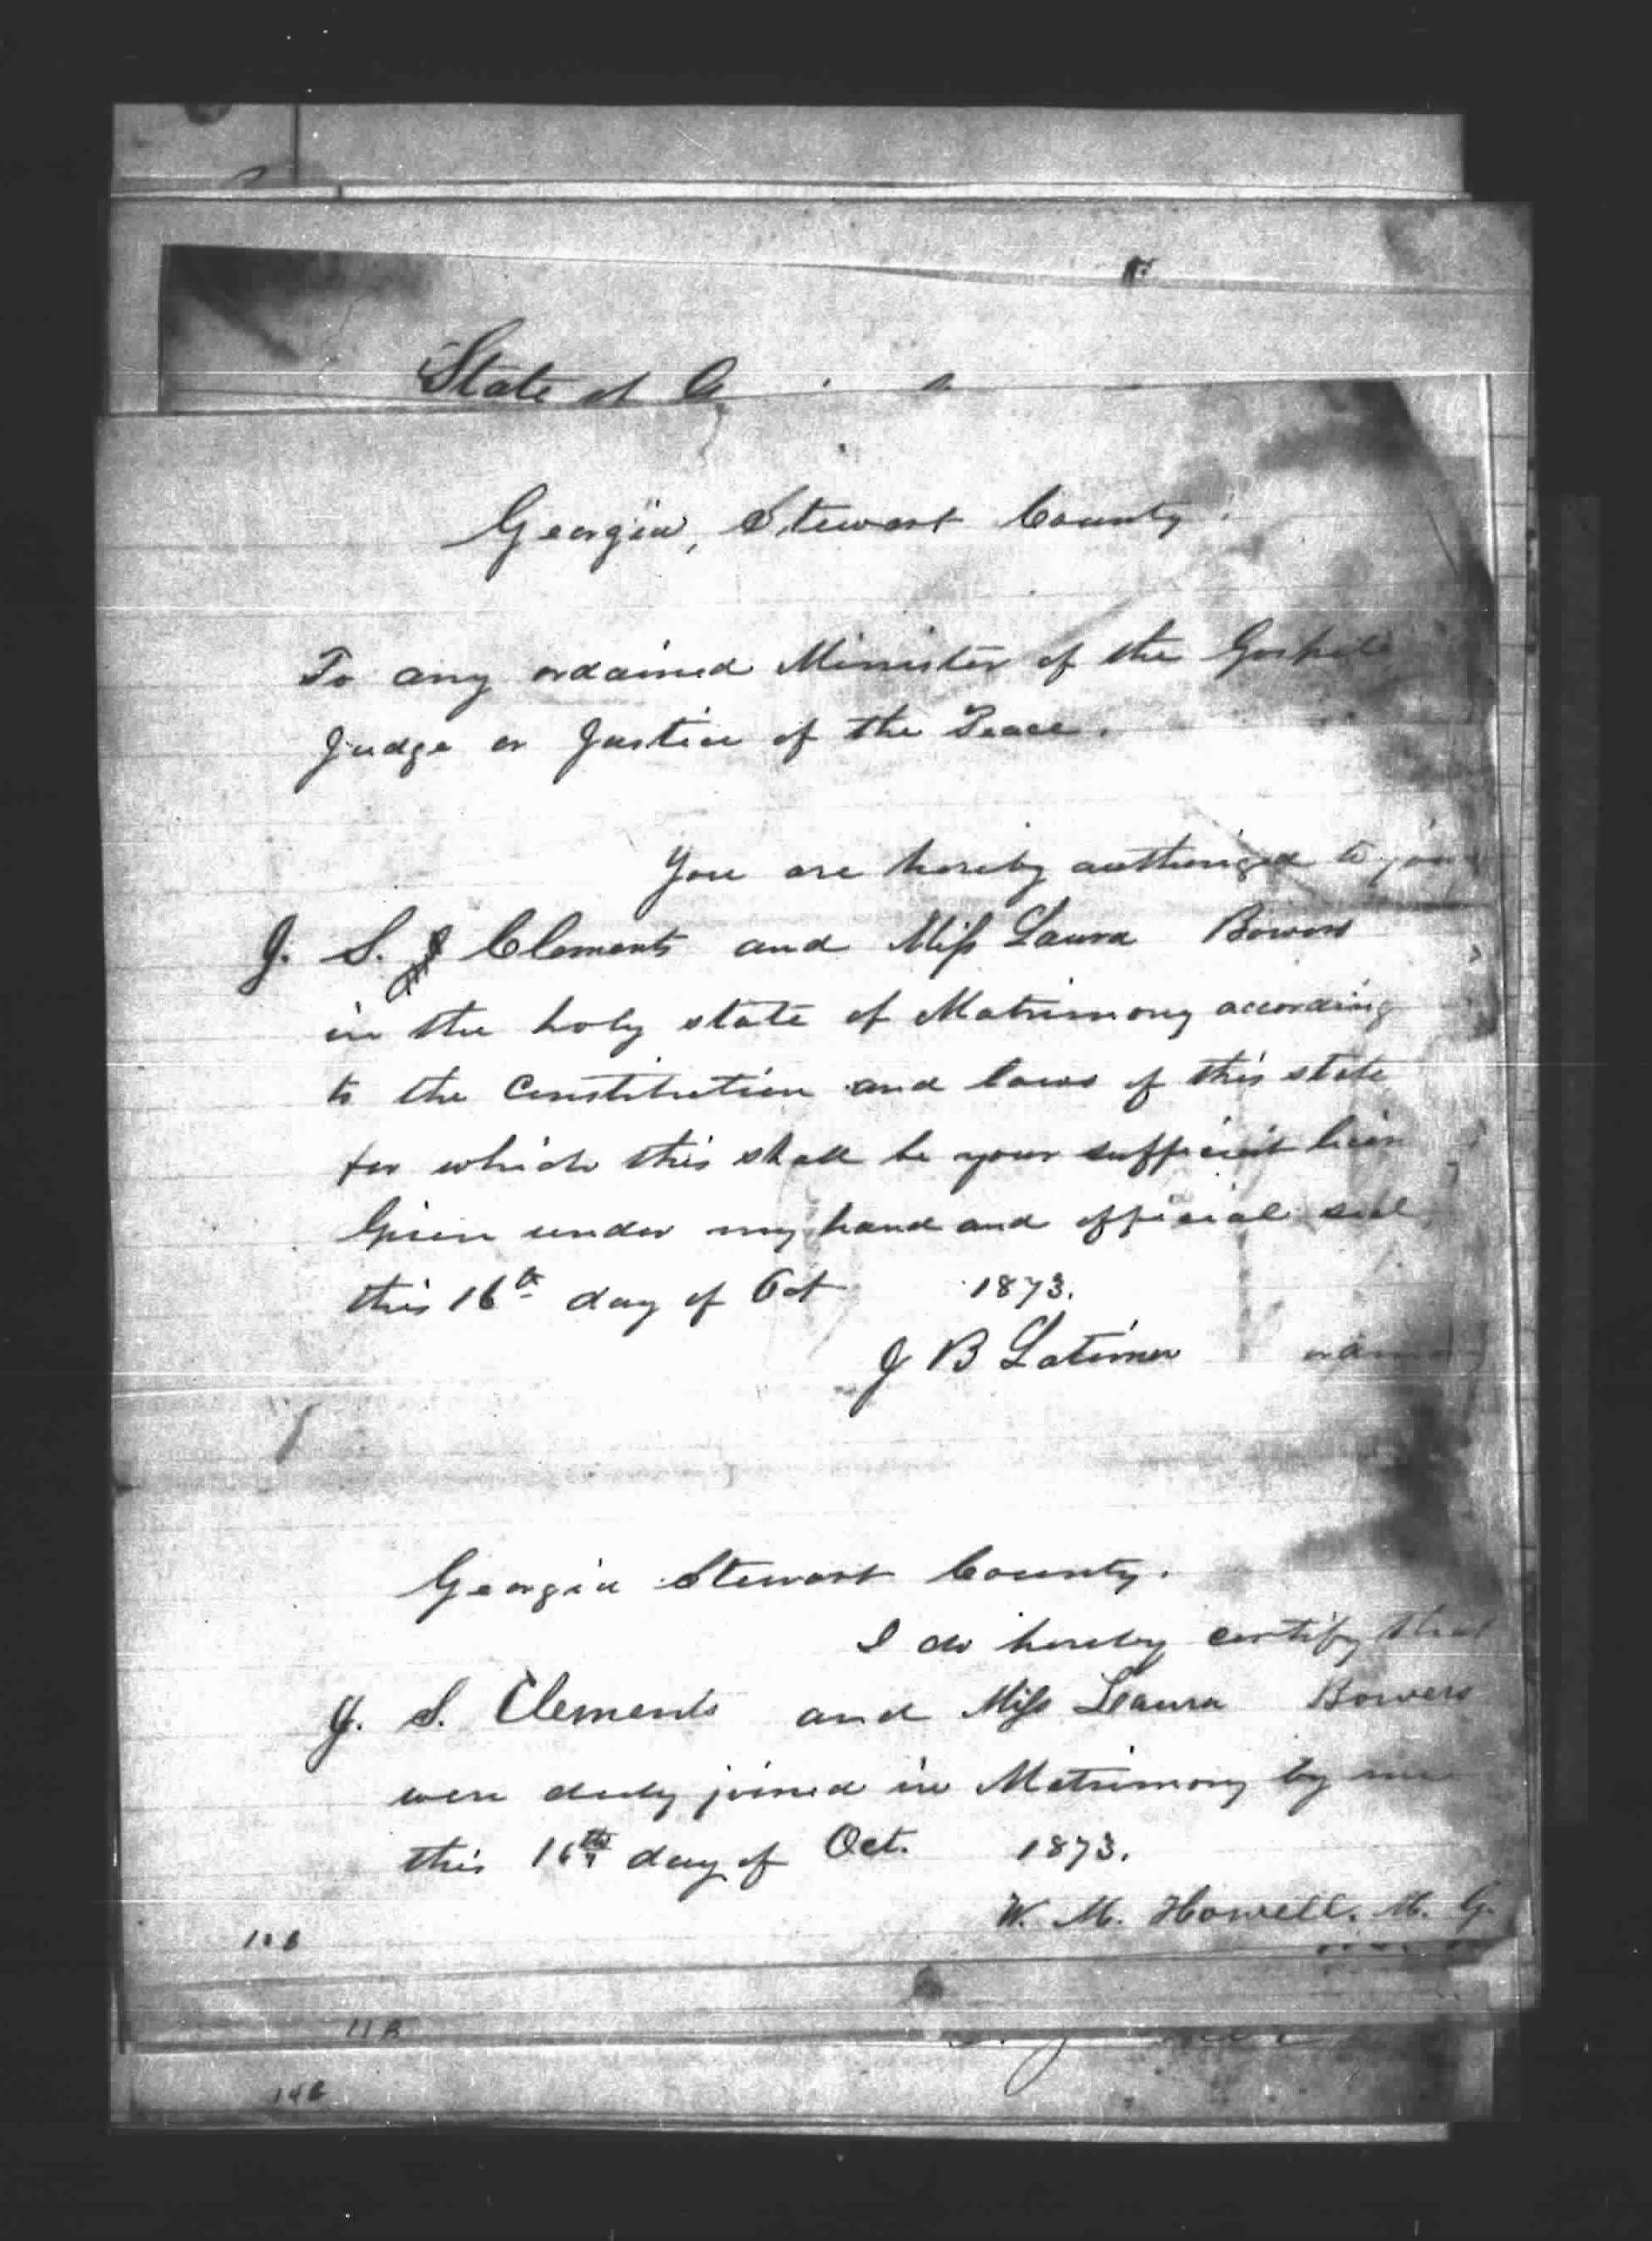 State of G
Georgia, Stewart County:
To any ordained Minister of the Gospel
Judge or Justice of the Peace.
You are hereby authorized to join
J. S. Clements and Miss Laura Bowers
in the holy state of Matrimony according
to the Constitution and laws of this state
for which this shall be your sufficient
Given under my hand and official seal
this 16th day of Oct 1873.
J B Latimer
Georgia Stewart County.
I do hereby certify that
J. S. Clements and Miss Laura Bowers
were duly joined in Matrimony by me
this 16th day of Oct. 1873.
W. M. Howell. M. G.